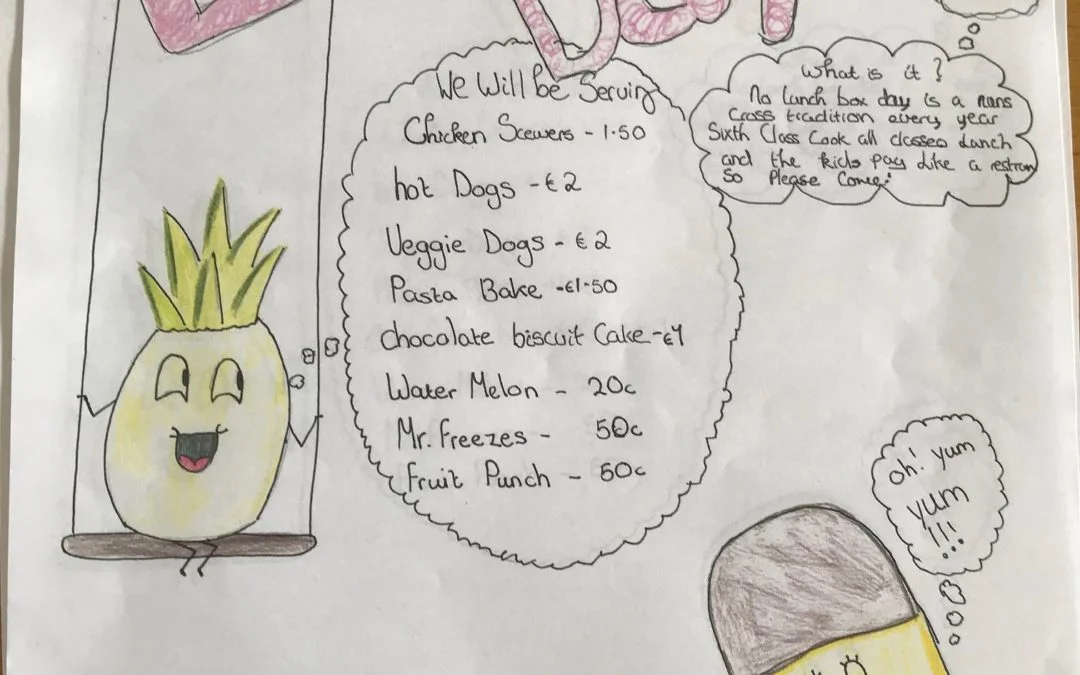 Day
We Will be Serving
Chicken Scewers - 1.50
hot Dogs - €2
Veggie Dogs - €2
Pasta Bake - €1.50
chocolate biscuit Cake - €1
Water Melon - 20c
Mr. Freezes - 50c
Fruit Punch - 50c
What is it?
No lunch box day is a nans
Cross tradition every year
Sixth Class Cook all classes Lunch
and the kids pay Like a restron
So Please Come!
oh! yum
yum
!!!